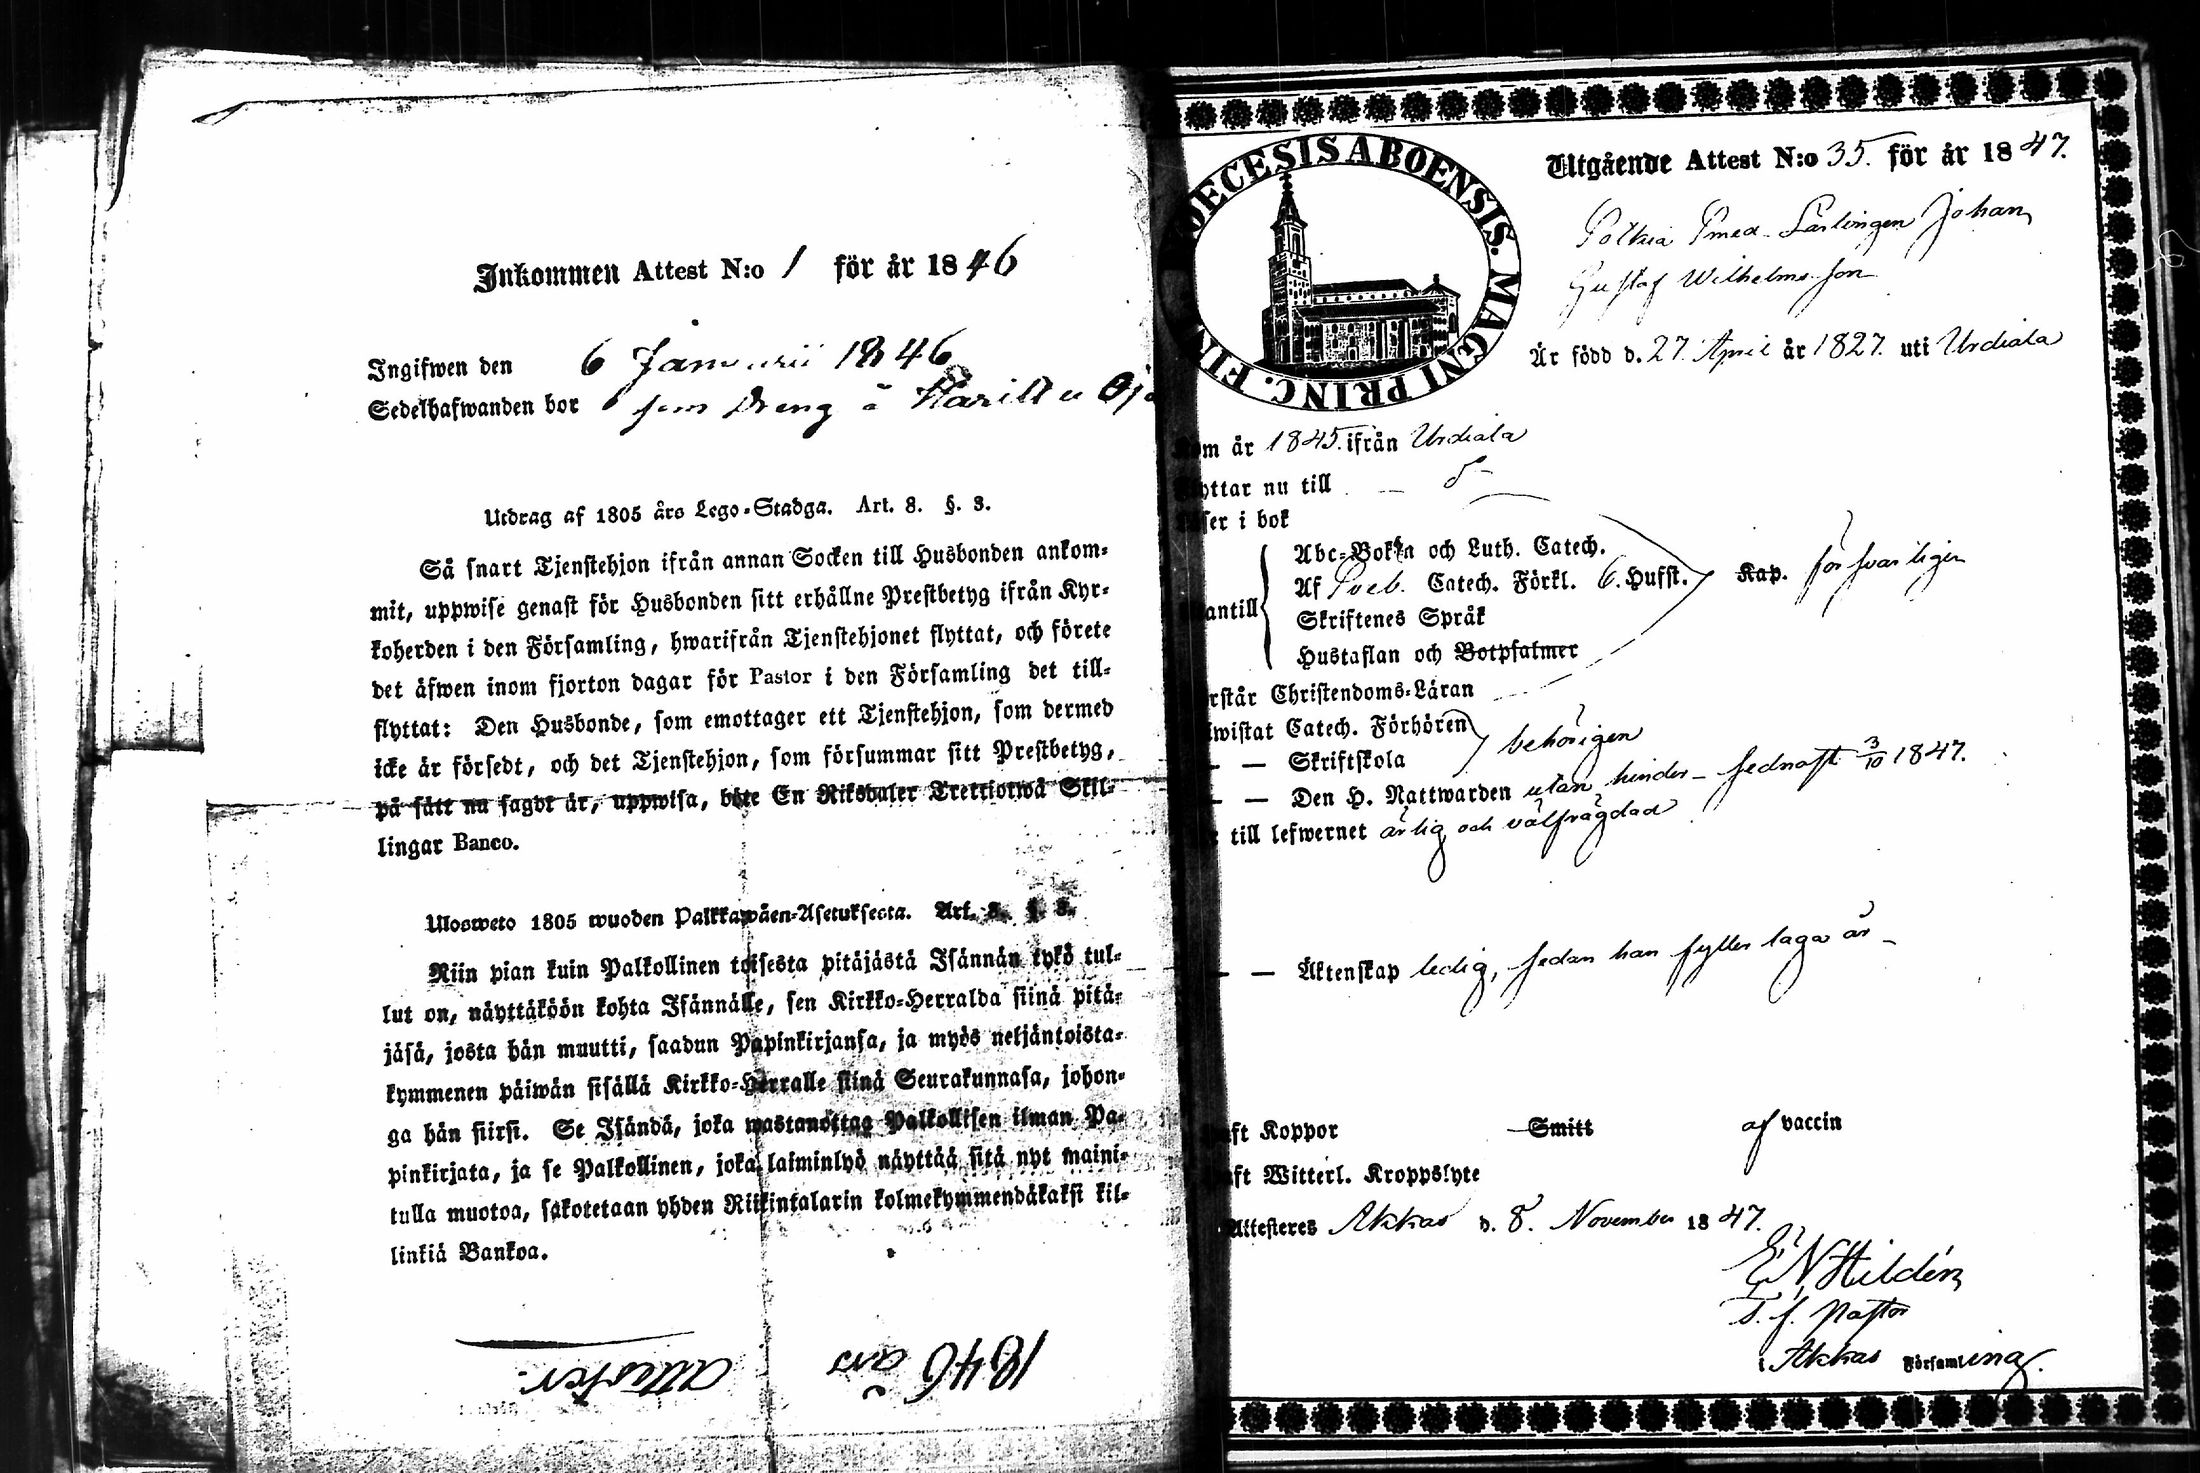 Inkommen Attest N:o 1 för år 1846
Ingifwen den 6 Januarii 1846
Sedelhafwanden bor som Dreng å
Utdrag af 1805 års Lego-Stadga. Art. 8. §. 3.
Så snart Tjenstehjon ifrån annan Socken till Husbonden ankom-
mit, uppwise genast för Husbonden sitt erhållne Prestbetyg ifrån Kyr-
koherden i den Församling, hwarifrån Tjenstehjonet flyttat, och förete
det äfwen inom fjorton dagar för Pastor i den Församling det till-
flyttat: Den Husbonde, som emottager ett Tjenstehjon, som dermed
icke är försedt, och det Tjenstehjon, som försummar sitt Prestbetyg,
på sätt nu sagdt är, uppwisa, böte En Riksdaler Trettiotwå Skil-
lingar Banco.
Ulosweto 1805 wuoden Palkkawäen-Asetuksesta. Art. 8. §. 3.
Niin pian kuin Palkollinen toisesta pitäjästä Isännän tykö tul-
lut on, näyttäköön kohta Isännälle, sen Kirkko-Herralda siinä pitä-
jäsä, josta hän muutti, saadun Papinkirjansa, ja myös neljäntoista-
kymmenen päiwän sisällä Kirkko-Herralle siinä Seurakunnasa, johon-
ga hän siirsi. Se Isändä, joka wastanottaa Palkollisen ilman Pa-
pinkirjata, ja se Palkollinen, joka laiminlyö näyttää sitä nyt maini-
tulla muotoa, sakotetaan yhden Riikintalarin kolmekymmendäkaksi kil-
linkiä Bankoa.
1846 års
Attester.
DECESIS ABOENSIS. MAGNI PRINC. FIN
Utgående Attest N:o 35. för år 1847.
Johan
Gustaf Wilhelmsson
Är född d. 27. April år 1827. uti Urdiala
om år 1845. ifrån Urdiala
yttar nu till
ser i bok
Abc-Boken och Luth. Catech.
Af Sveb. Catech. Förkl. 6. Hufst. Kap. försvarligen
antill Skriftenes Språk
Hustaflan och Botpsalmer
rstår Christendoms-Läran
wistat Catech. Förhören behörigen
— — Skriftskola
— — Den H. Nattwarden utan hinder sednast 3/10 1847.
till lefwernet ärlig och välfrägdad
— — Äktenskap ledig, sedan han fyller laga år
aft Koppor Smitt af vaccin
aft Witterl. Kroppslyte
Attesteres Akkas d. 8. November 1847.
E N Hildén
T. f. Pastor
i Akkas Församling.